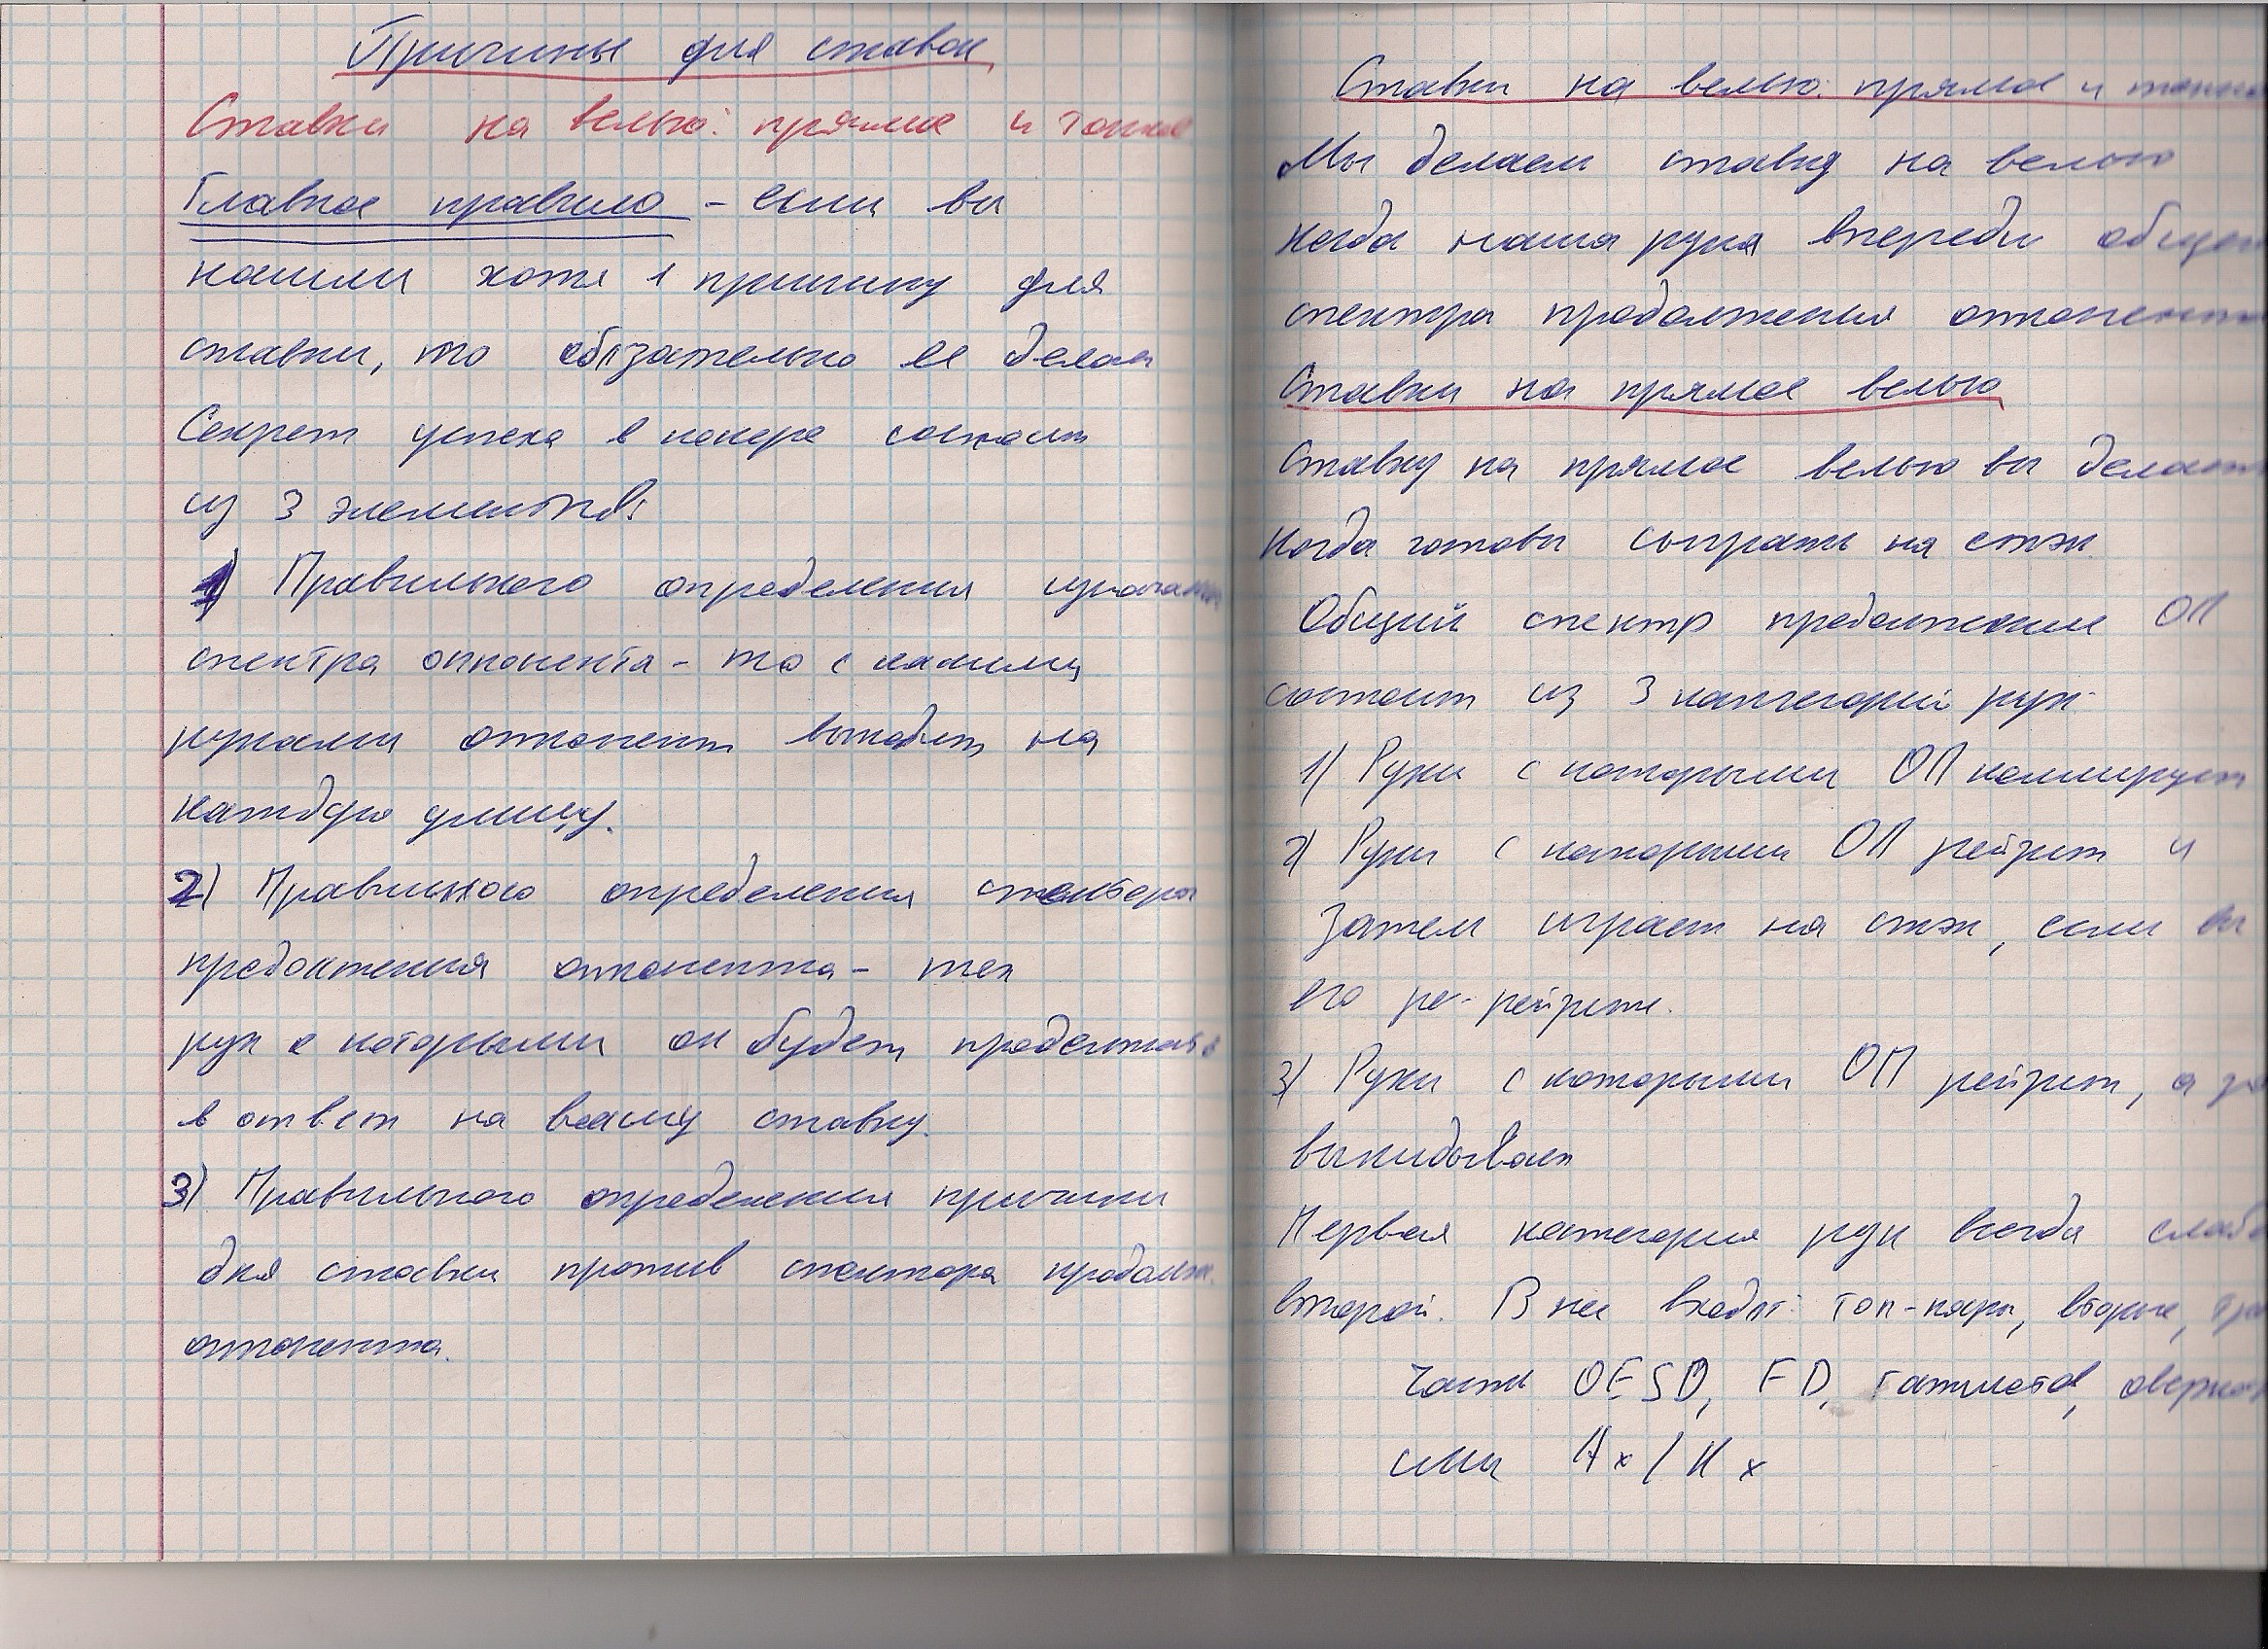 Причины для ставок
Ставки на велью: прямое и тонкое
Главное правило - если вы
нашли хотя 1 причину для
ставки, то обязательно ее делаи
Секрет успеха в покере состоит
из 3 элементов:
1) Правильного определения изначальн
спектра оппонента - то с какими
руками оппонент выходит на
каждую улицу.
2) Правильного определения спектра
продолжения оппонента - тех
рук с которыми он будет продолжать
в ответ на вашу ставку.
3) Правильного определения причины
для ставки против спектора продолж.
оппонента.
Ставки на велью: прямое и тонкое
Мы делаем ставку на велью
когда наша рука впереди общего
спектра продолжения оппонента
Ставки на прямое велью
Ставку на прямое велью вы делаете
когда готовы сыграть на стэк.
Общий спектр продолжения ОП
состоит из 3 категорий рук.
1) Руки с которыми ОП коллирует
2) Руки с которыми ОП рейзит и
Затем играет на стэк, если вы
его ре-рейзите.
3) Руки с которыми ОП рейзит, а
выкидывает
Первая категория рук всегда слабее
второй. В нее входят: топ-пары, вторые,
часть OESD, FD, гатшотов,
или Ax / Kx